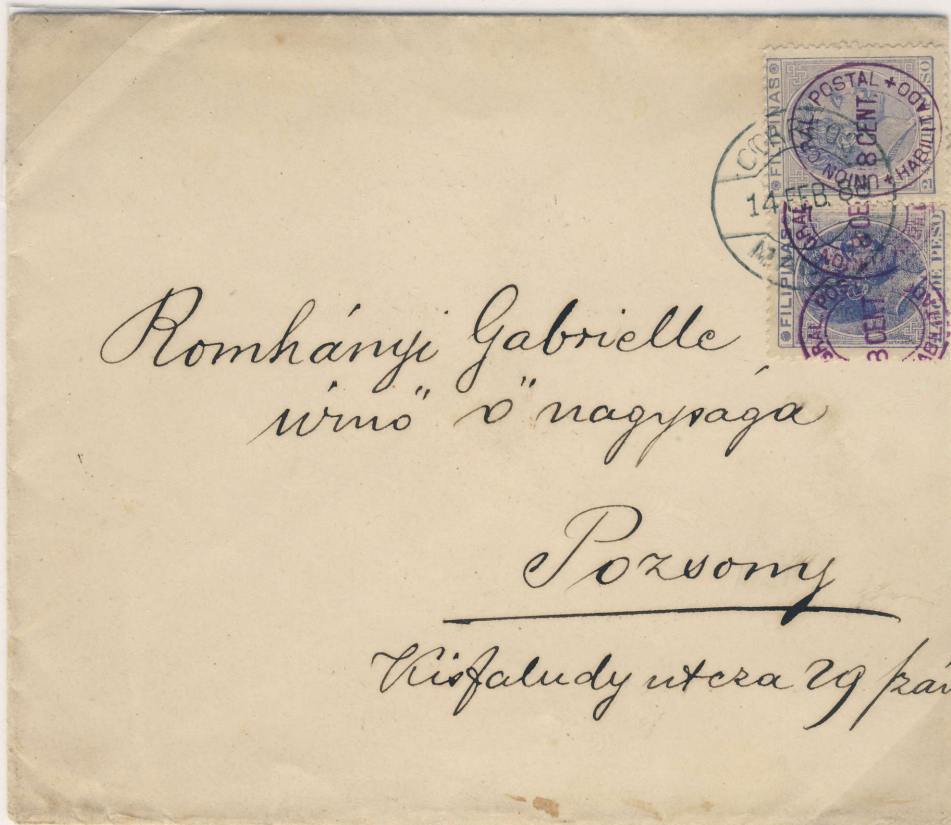 FILIPINAS
UNION GRAL POSTAL + HABILITADO +
8 CENT.
14 FEB. 8
FILIPINAS
DE PESO
GRAL POS
8 CENT
Romhányi Gabrielle
úrnő ő nagysága
Pozsony
Kisfaludy utcza 29